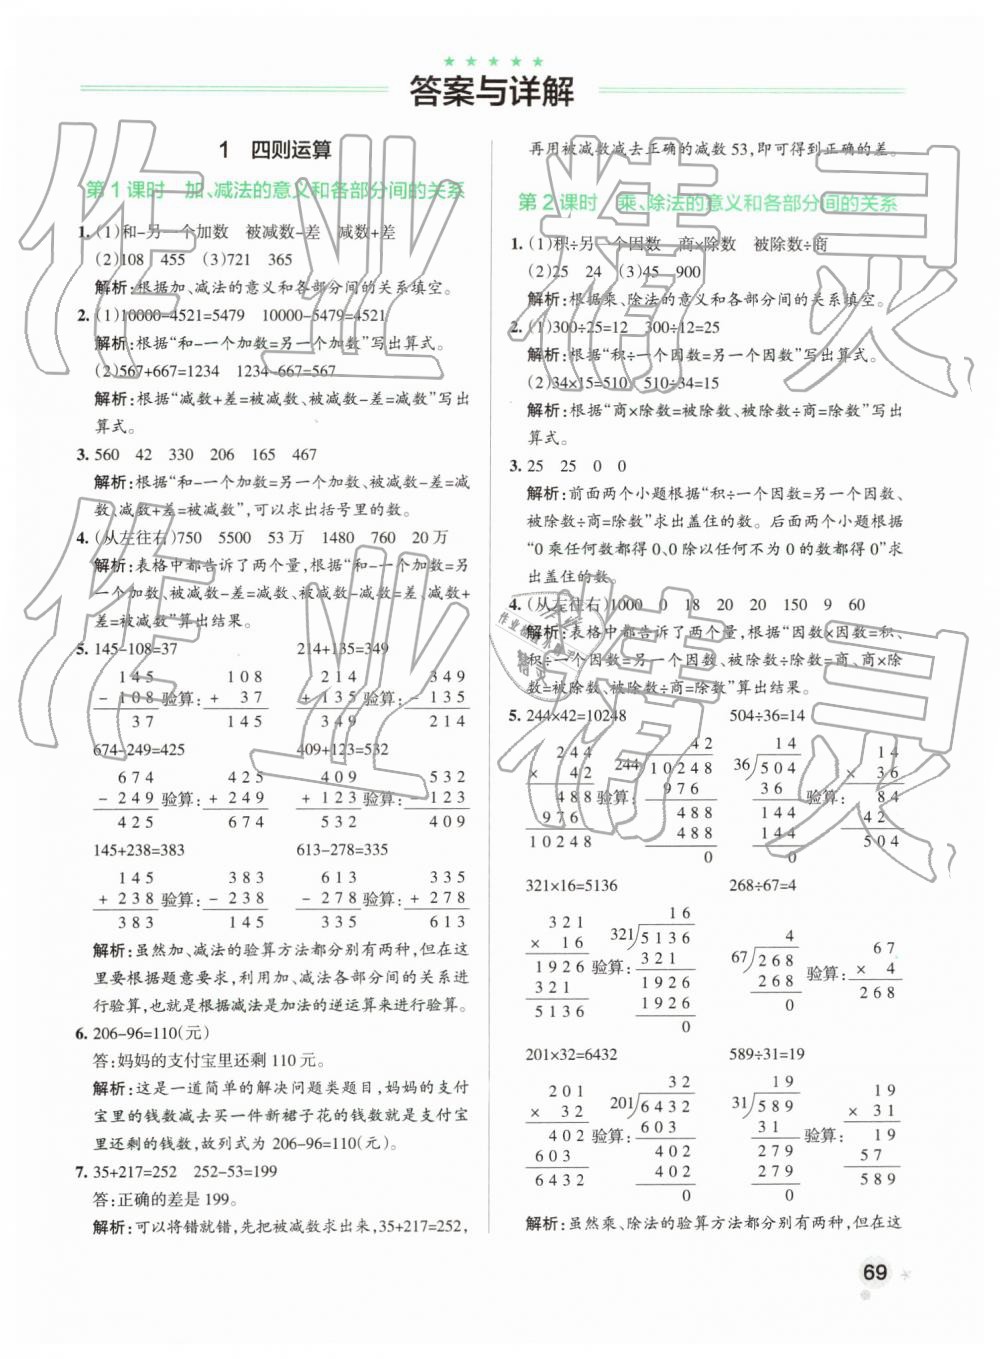 答案与详解
1 四则运算
第1课时 加、减法的意义和各部分间的关系
1. (1)和-另一个加数 被减数-差 减数+差
(2)108 455 (3)721 365
解析:根据加、减法的意义和各部分间的关系填空。
2. (1)10000-4521=5479 10000-5479=4521
解析:根据“和-一个加数=另一个加数”写出算式。
(2)567+667=1234 1234-667=567
解析:根据“减数+差=被减数、被减数-差=减数”写出
算式。
3. 560 42 330 206 165 467
解析:根据“和-一个加数=另一个加数、被减数-差=减
数、减数+差=被减数”,可以求出括号里的数。
4. (从左往右)750 5500 53万 1480 760 20万
解析:表格中都告诉了两个量,根据“和-一个加数=另
一个加数、被减数-减数=差、被减数-差=减数、减数+
差=被减数”算出结果。
5. 145-108=37 214+135=349
145 108 214 349
-108 验算: + 37 +135 验算: -135
37 145 349 214
674-249=425 409+123=532
674 425 409 532
-249 验算: +249 +123 验算: -123
425 674 532 409
145+238=383 613-278=335
145 383 613 335
+238 验算: -238 -278 验算: +278
383 145 335 613
解析:虽然加、减法的验算方法都分别有两种,但在这
里要根据题意要求,利用加、减法各部分间的关系进
行验算,也就是根据减法是加法的逆运算来进行验算。
6. 206-96=110(元)
答:妈妈的支付宝里还剩110元。
解析:这是一道简单的解决问题类题目,妈妈的支付
宝里的钱数减去买一件新裙子花的钱数就是支付宝
里还剩的钱数,故列式为206-96=110(元)。
7. 35+217=252 252-53=199
答:正确的差是199。
解析:可以将错就错,先把被减数求出来,35+217=252,
再用被减数减去正确的减数53,即可得到正确的差。
第2课时 乘、除法的意义和各部分间的关系
1. (1)积÷另一个因数 商×除数 被除数÷商
(2)25 24 (3)45 900
解析:根据乘、除法的意义和各部分间的关系填空。
2. (1)300÷25=12 300÷12=25
解析:根据“积÷一个因数=另一个因数”写出算式。
(2)34×15=510 510÷34=15
解析:根据“商×除数=被除数、被除数÷商=除数”写出
算式。
3. 25 25 0 0
解析:前面两个小题根据“积÷一个因数=另一个因数、
被除数÷商=除数”求出盖住的数。后面两个小题根据
“0乘任何数都得0、0除以任何不为0的数都得0”求
出盖住的数。
4. (从左往右)1000 0 18 20 20 150 9 60
解析:表格中都告诉了两个量,根据“因数×因数=积、
积÷一个因数=另一个因数、被除数÷除数=商、商×除
数=被除数、被除数÷商=除数”算出结果。
5. 244×42=10248 504÷36=14
42 14
244 244 10248 36 504 14
× 42 976 36 × 36
488 验算: 488 144 验算: 84
976 488 144 42
10248 0 0 504
321×16=5136 268÷67=4
16
321 321 5136 4 67
× 16 321 67 268 × 4
1926 验算: 1926 268 验算: 268
321 1926 0
5136 0
201×32=6432 589÷31=19
32 19
201 201 6432 31 589 19
× 32 603 31 × 31
402 验算: 402 279 验算: 19
603 402 279 57
6432 0 0 589
解析:虽然乘、除法的验算方法都分别有两种,但在这
69
作业精灵
作业精灵